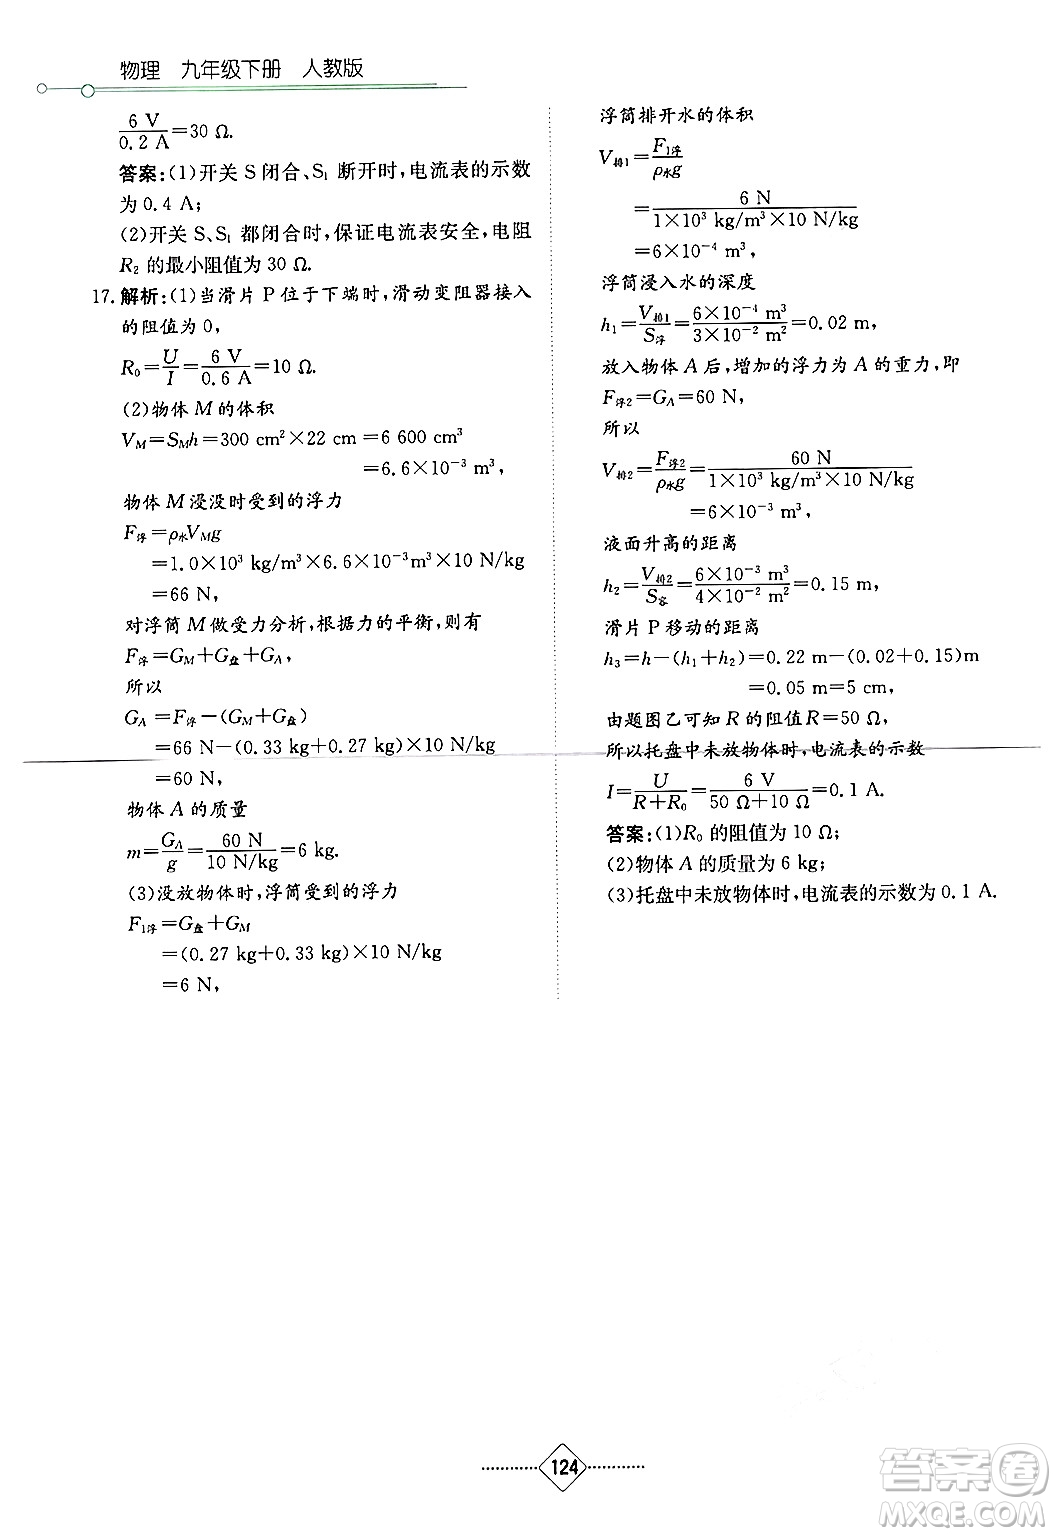 物理 九年级下册 人教版
6 V/0.2 A=30 Ω.
答案:(1)开关 S 闭合、S₁ 断开时,电流表的示数
为 0.4 A;
(2)开关 S、S₁ 都闭合时,保证电流表安全,电阻
R₂ 的最小阻值为 30 Ω.
17. 解析:(1)当滑片 P 位于下端时,滑动变阻器接入
的阻值为 0,
R₀=U/I=6 V/0.6 A=10 Ω.
(2)物体 M 的体积
V_M=S_M h=300 cm²×22 cm=6 600 cm³
=6.6×10⁻³ m³,
物体 M 浸没时受到的浮力
F浮=ρ水V_M g
=1.0×10³ kg/m³×6.6×10⁻³m³×10 N/kg
=66 N,
对浮筒 M 做受力分析,根据力的平衡,则有
F浮=G_M+G盘+G_A,
所以
G_A=F浮-(G_M+G盘)
=66 N-(0.33 kg+0.27 kg)×10 N/kg
=60 N,
物体 A 的质量
m=G_A/g=60 N/10 N/kg=6 kg.
(3)没放物体时,浮筒受到的浮力
F₁浮=G盘+G_M
=(0.27 kg+0.33 kg)×10 N/kg
=6 N,
浮筒排开水的体积
V排1=F₁浮/ρ水g
=6 N/1×10³ kg/m³×10 N/kg
=6×10⁻⁴ m³,
浮筒浸入水的深度
h₁=V排1/S浮=6×10⁻⁴ m³/3×10⁻² m²=0.02 m,
放入物体 A 后,增加的浮力为 A 的重力,即
F浮2=G_A=60 N,
所以
V排2=F浮2/ρ水g=60 N/1×10³ kg/m³×10 N/kg
=6×10⁻³ m³,
液面升高的距离
h₂=V排2/S容=6×10⁻³ m³/4×10⁻² m²=0.15 m,
滑片 P 移动的距离
h₃=h-(h₁+h₂)=0.22 m-(0.02+0.15)m
=0.05 m=5 cm,
由题图乙可知 R 的阻值R=50 Ω,
所以托盘中未放物体时,电流表的示数
I=U/R+R₀=6 V/50 Ω+10 Ω=0.1 A.
答案:(1)R₀ 的阻值为 10 Ω;
(2)物体 A 的质量为 6 kg;
(3)托盘中未放物体时,电流表的示数为 0.1 A.
124
答案圈
MXQE.COM